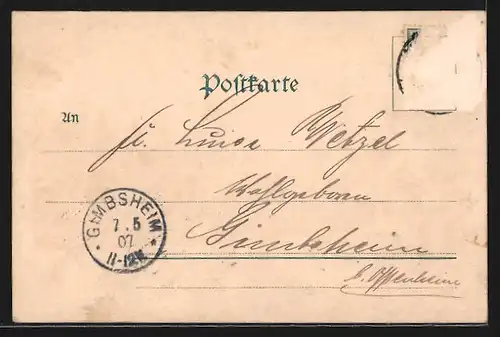 Postkarte
An
Fr. Luise Wetzel
Wohlgeboren
Gimbsheim
GIMBSHEIM
7.5
07
11-12V